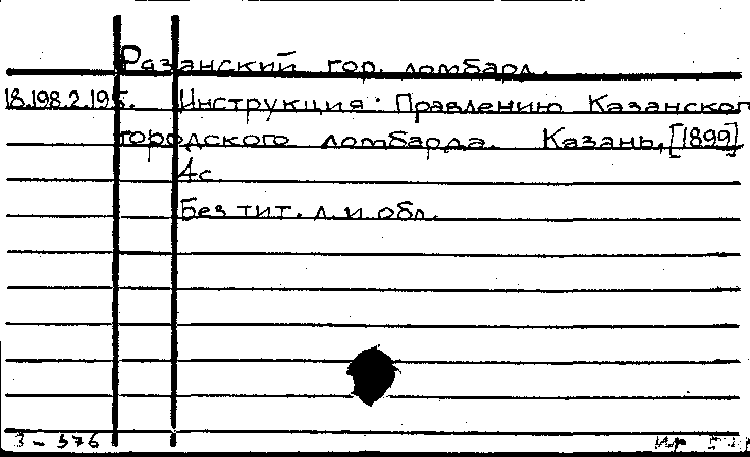 Рязанский гор. ломбард.
18.198.2.195. Инструкция: Правлению Казанског
городского ломбарда. Казань, [1899]
4с
Без тит. л. и обл.
3 - 576